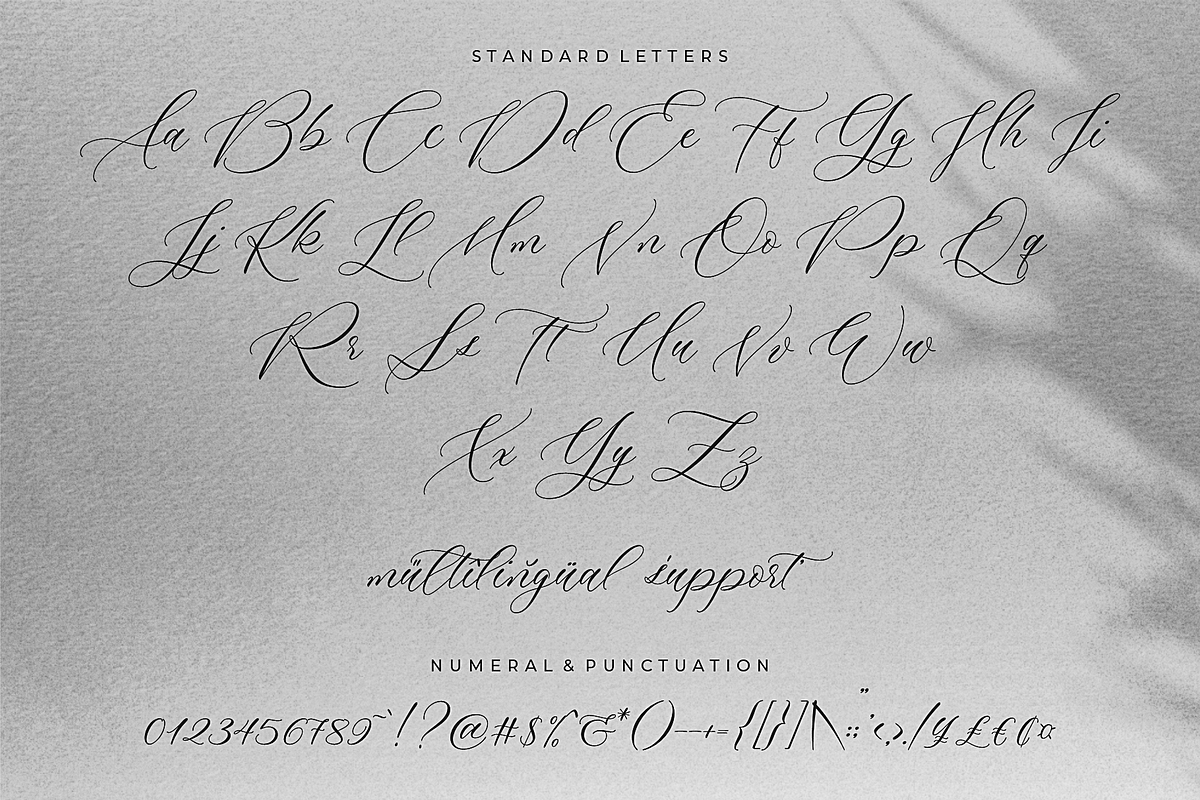 STANDARD LETTERS
Aa Bb Cc Dd Ee Ff Gg Hh Ii
Jj Kk Ll Mm Nn Oo Pp Qq
Rr Ss Tt Uu Vv Ww
Xx Yy Zz
mültiliñgüal śupport
NUMERAL & PUNCTUATION
0123456789~`!?@#$%&*()—-+={[}]|\:;"'<,>./¥£€₵¤